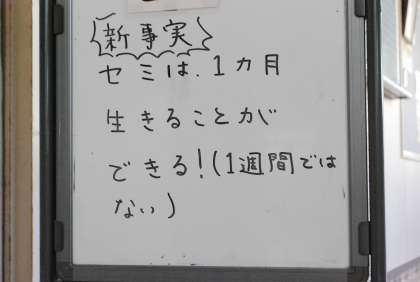 新事実
セミは、1カ月
生きることが
できる!(1週間では
ない)